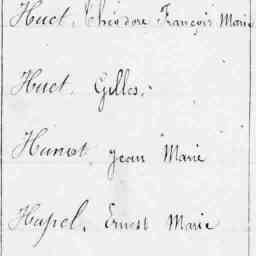 Huet, Théodore François Marie
Huet, Gilles,
Hunot, Jean Marie
Hupel, Ernest Marie